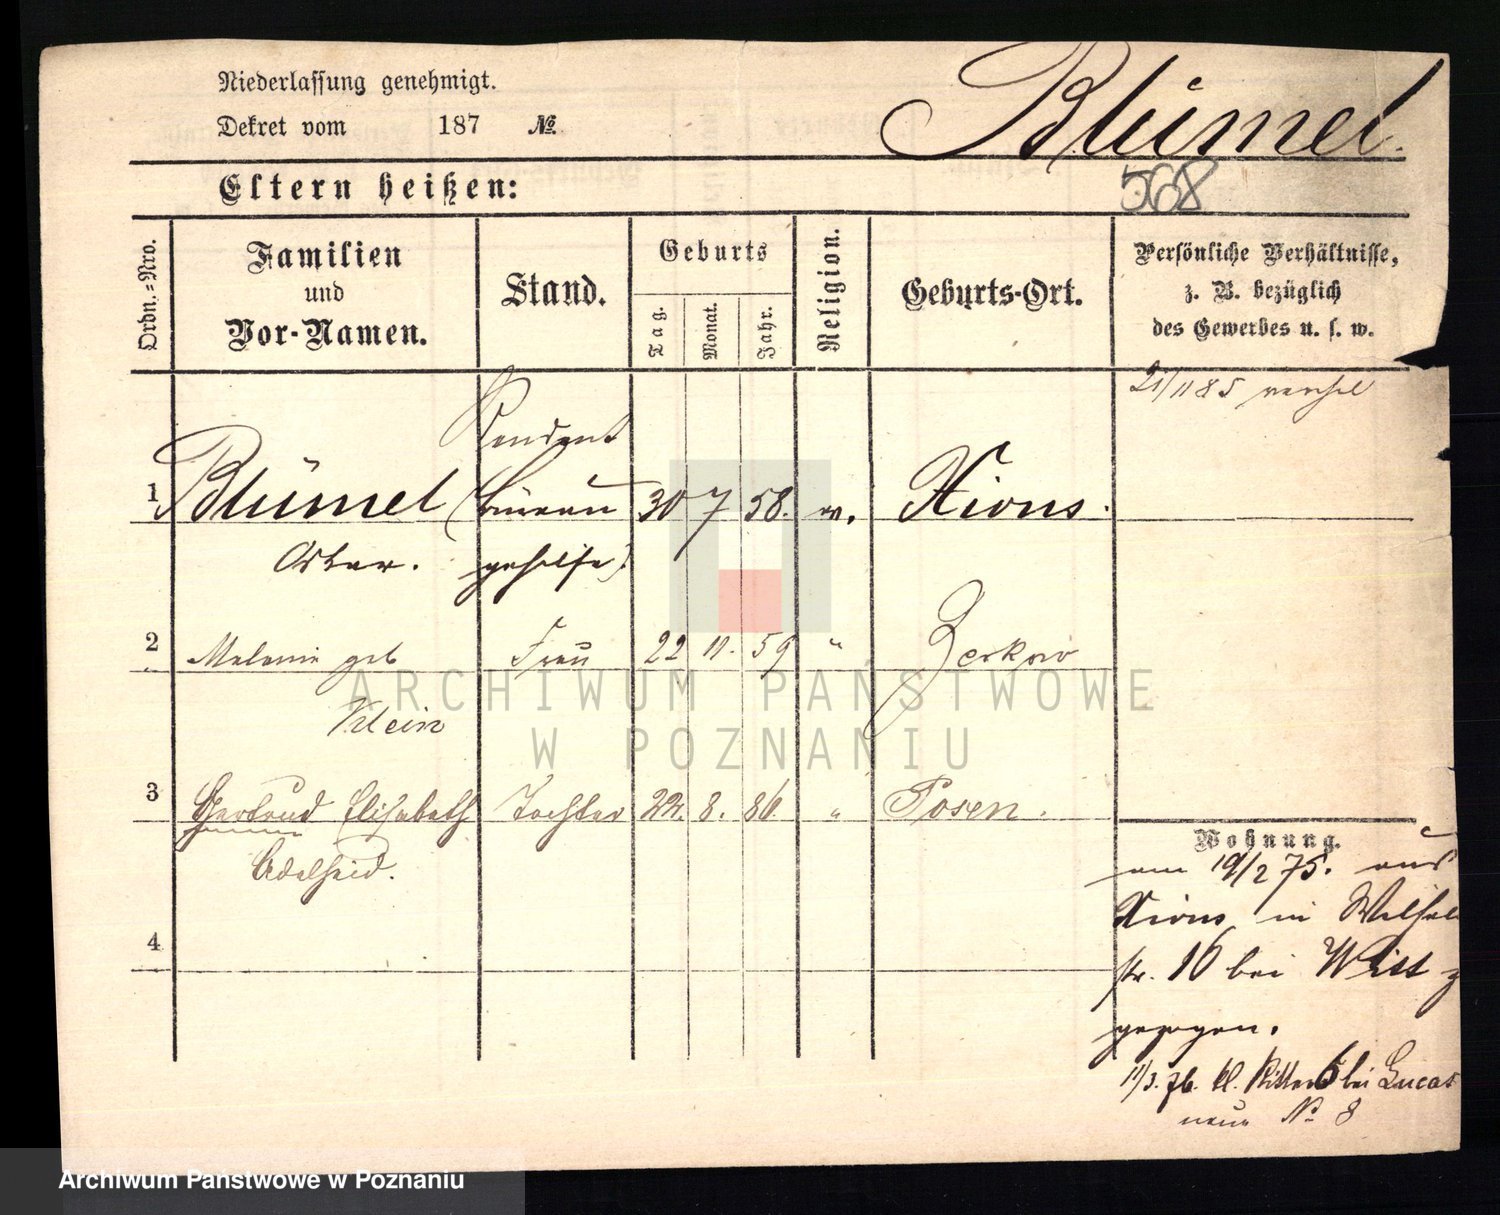 Niederlassung genehmigt.
Dekret vom 187 №
Blümel.
568
Eltern heißen:
Ordn.=Nro.
Familien
und
Vor-Namen.
Stand.
Geburts
Tag.
Monat.
Jahr.
Religion.
Geburts-Ort.
Persönliche Verhältnisse,
z. B. bezüglich
des Gewerbes u. s. w.
21/11 85
Rendant
1 Blümel (Büreau 30 7 58. ev. Xions.
Oskar. gehilfe)
2 Melanie geb Frau 22 11. 59 " Zerkow
Klein
3 Gertrud Elisabeth Tochter 22. 8. 86. " Posen.
Adelheid.
4
Wohnung.
am 19/2 75. aus
Xions in Wilhel
str. 16 bei Witt z
gezogen.
11/3. 76. kl. Ritter 6 bei Lucas
neue No 8
ARCHIWUM PAŃSTWOWE
W POZNANIU
Archiwum Państwowe w Poznaniu